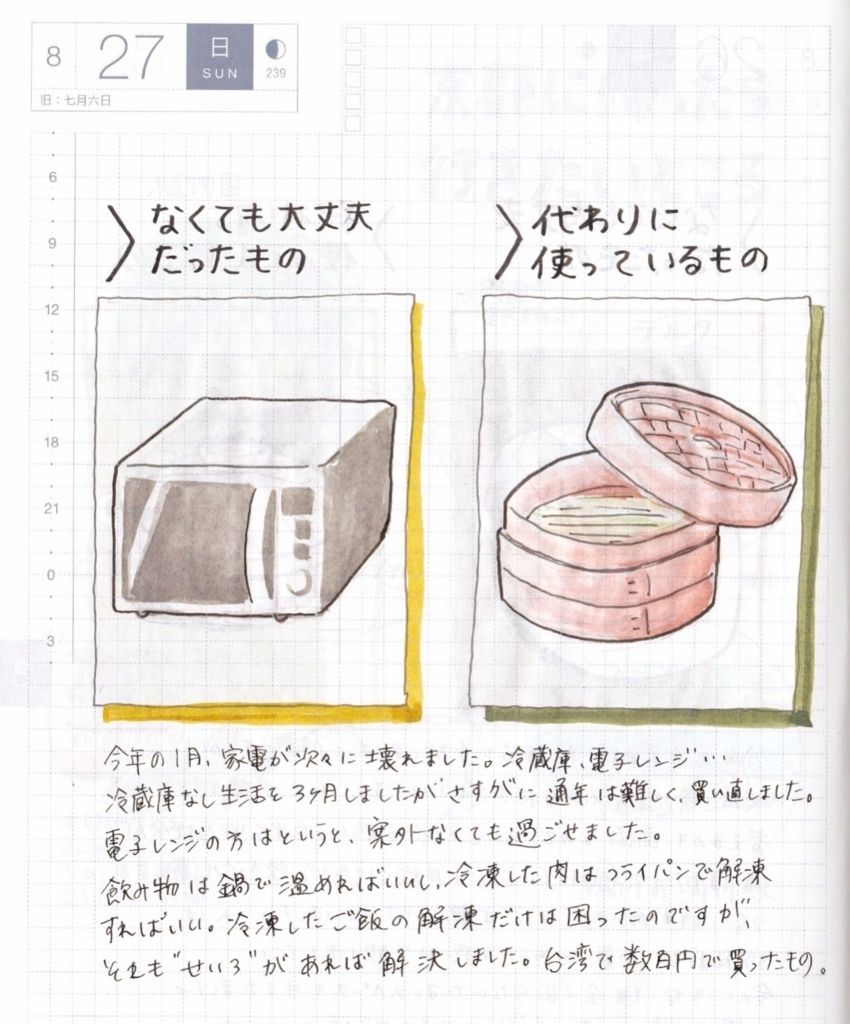 8 27 日 SUN 239
旧:七月六日
なくても大丈夫
だったもの
代わりに
使っているもの
6
9
12
15
18
21
0
3
今年の1月、家電が次々に壊れました。冷蔵庫、電子レンジ…
冷蔵庫なし生活を3ヶ月しましたがさすがに通年は難しく、買い直しました。
電子レンジの方はというと、案外なくても過ごせました。
飲み物は鍋で温めればいいし、冷凍した肉はフライパンで解凍
すればいい。冷凍したご飯の解凍だけは困ったのですが、
それも"せいろ"があれば解決しました。台湾で数百円で買ったもの。